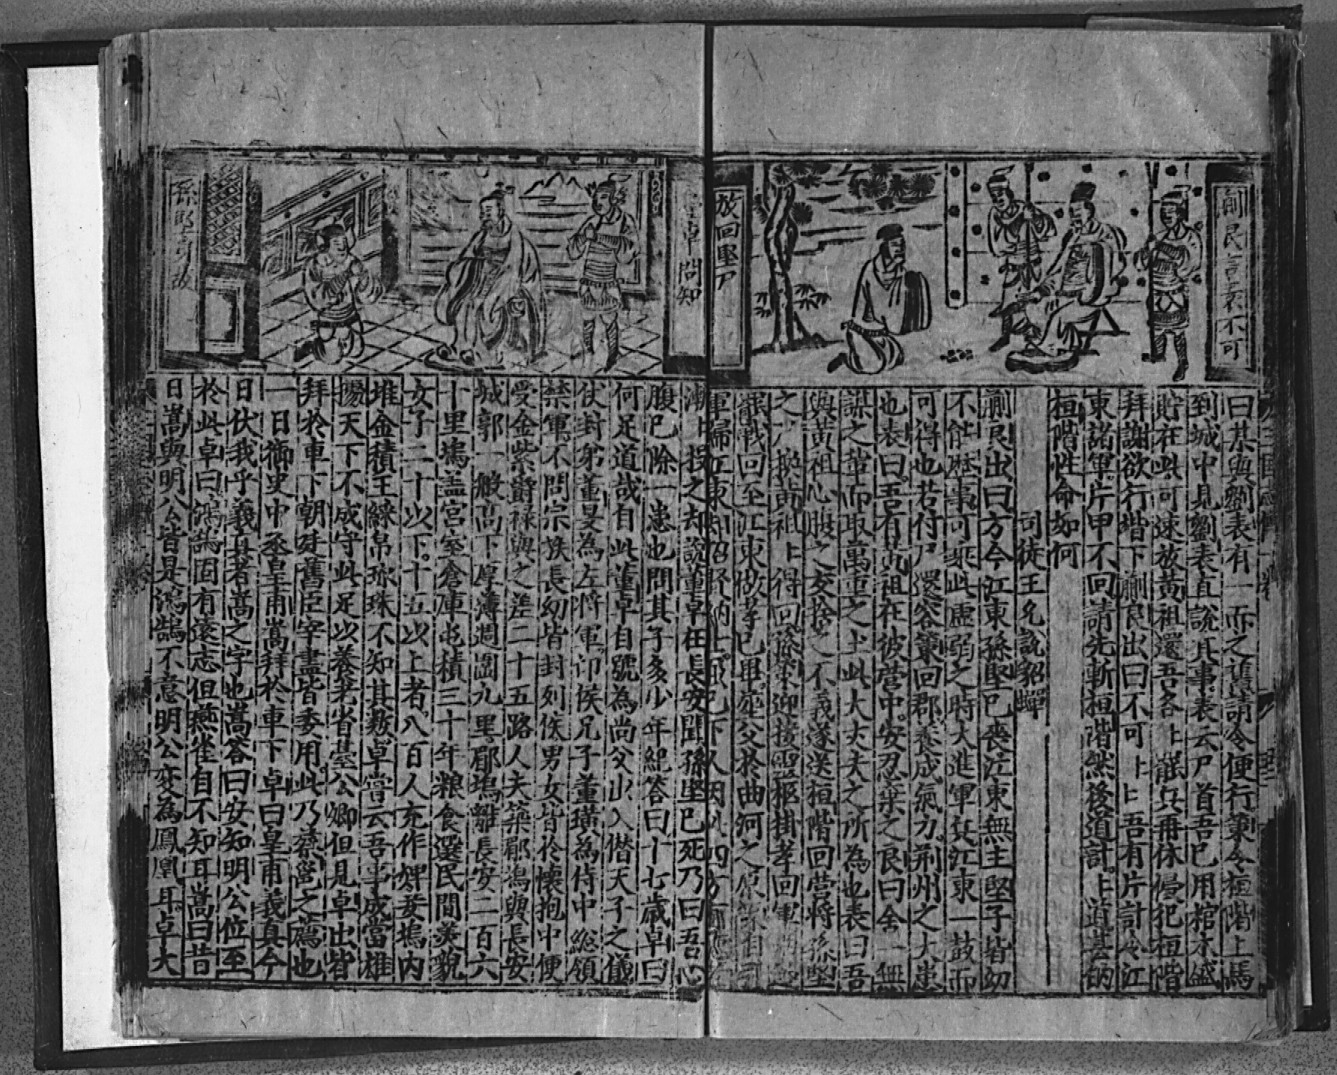 蒯良言表不可
放回堅尸
曰某與劉表有一面之舊請令便行策令桓階上馬
到城中見劉表直說其事表云尸首吾已用棺木盛
貯在此可速放黃祖還吾各上罷兵再休侵犯桓階
拜謝欲行堦下蒯良出曰不可上上吾有片計令江
東諸軍片甲不回請先斬桓階然後道計上道甚的
桓階性命如何
司徒王允說貂蟬
蒯良出曰方今江東孫堅已喪江東無主堅子皆幼
不能歷事可乘此虛弱之時大進軍兵江東一鼓而
可得也若付尸還容策回郡養成氣力荊州之大患
也表曰吾有黃祖在彼營中安忍棄之良曰舍一無
謀之輩而取萬里之土此大丈夫之所為也表曰吾
與黃祖心腹之交捨之不義遂送桓階回營將孫堅
之尸換黃祖上得回孫策迎接靈柩掛孝回軍
罷戰回至江東做孝已畢葬父於曲阿之原
軍歸江東招賢納士屈己下人因此四方
卓問知
孫堅身故
漸上投之却說董卓在長安聞孫堅已死乃曰吾心
腹已除一患也問其子多少年紀答曰十七歲卓曰
何足道哉自此董卓自號為尚父出入僭天子之儀
仗封弟董旻為左將軍卭侯兄子董璜為侍中總領
禁軍不問宗族長幼皆封列侯男女皆伶懷抱中便
受金紫爵祿與之差二十五路人夫築郿塢與長安
城郭一般高下厚薄週圍九里郿塢離長安二百六
十里塢盖宮室倉庫屯積三十年粮食選民間美貌
女子二十以下十五以上者八百人充作婢妾塢內
堆金積玉綵帛珍珠不知其數卓嘗云吾事成當雄
據天下不成守此足以養老省臺公卿但見卓出皆
拜於車下朝廷舊臣宰盡皆委用此乃蔡邕之薦也
一日御史中丞皇甫嵩拜於車下卓曰皇甫義真今
日伏我乎義真者嵩之字也嵩答曰安知明公位至
於此卓曰鴻鵠固有遠志但燕雀自不知耳嵩曰昔
日嵩與明公皆是鴻鵠不意明公变為鳳凰耳卓大